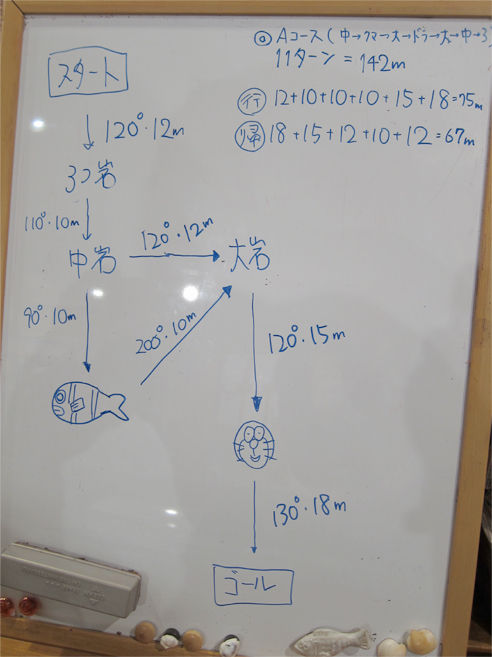 ⓐ Aコース(中→クマ→大→ドラ→大→中→3)
11ターン = 142m
行 12+10+10+10+15+18=75m
帰 18+15+12+10+12=67m
スタート
120°・12m
3つ岩
110°・10m
中岩
120°・12m
大岩
90°・10m
200°・10m
120°・15m
130°・18m
ゴール